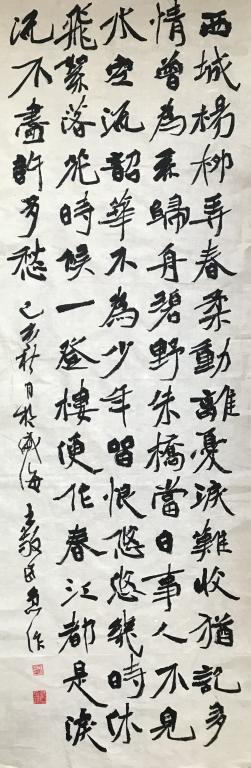 西城楊柳弄春柔動離憂淚難收猶記多
情曾為系歸舟碧野朱橋當日事人不見
水空流韶華不為少年留恨悠悠幾時休
飛絮落花時候一登樓便作春江都是淚
流不盡許多愁 己亥秋月於威海